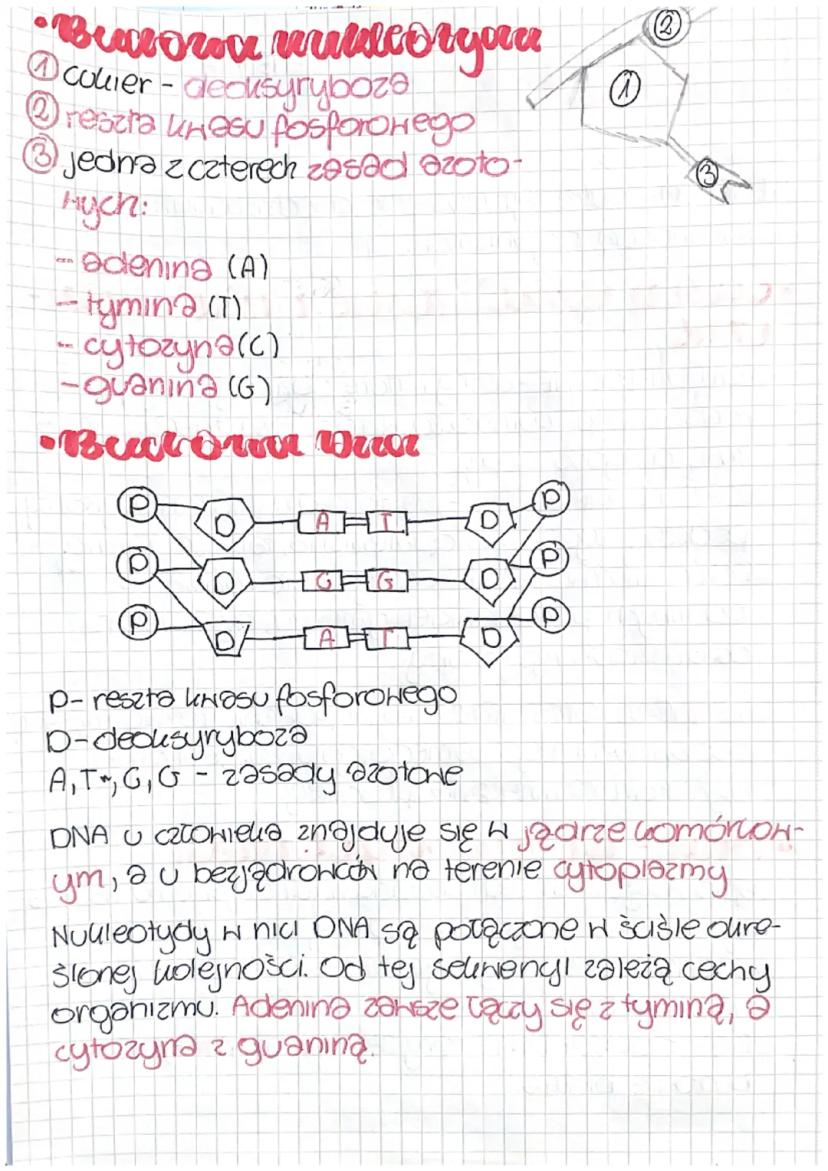 • Budowa nukleotydu
② 
① cukier - deoksyryboza
①
② reszta kwasu fosforowego
③ jedna z czterech zasad azoto-
③
wych:
- adenina (A)
- tymina (T)
- cytozyna (C)
- guanina (G)
• Budowa DNA
P D A T D P
P D G G D P
P D A T D P
P- reszta kwasu fosforowego
D- deoksyryboza
A, T, G, G - zasady azotowe
DNA u człowieka znajduje się w jądrze komórkow-
ym, a u bezjądrowców na terenie cytoplazmy
Nukleotydy w nici DNA są połączone w ściśle okre-
ślonej kolejności. Od tej sekwencji zależą cechy
organizmu. Adenina zawsze łączy się z tyminą, a
cytozyna z guaniną.